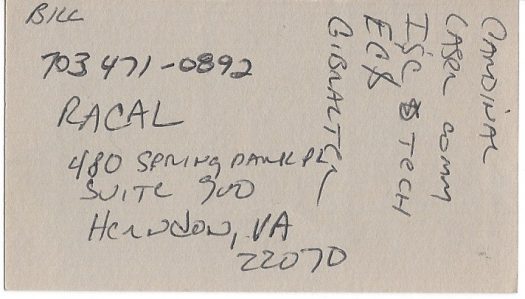 BILL
703 471-0892
RACAL
480 SPRING PARK PL
SUITE 900
HERNDON, VA
22070
CARDINAL
LASER COMM
ISC & TECH
ECX
GIBRALTER